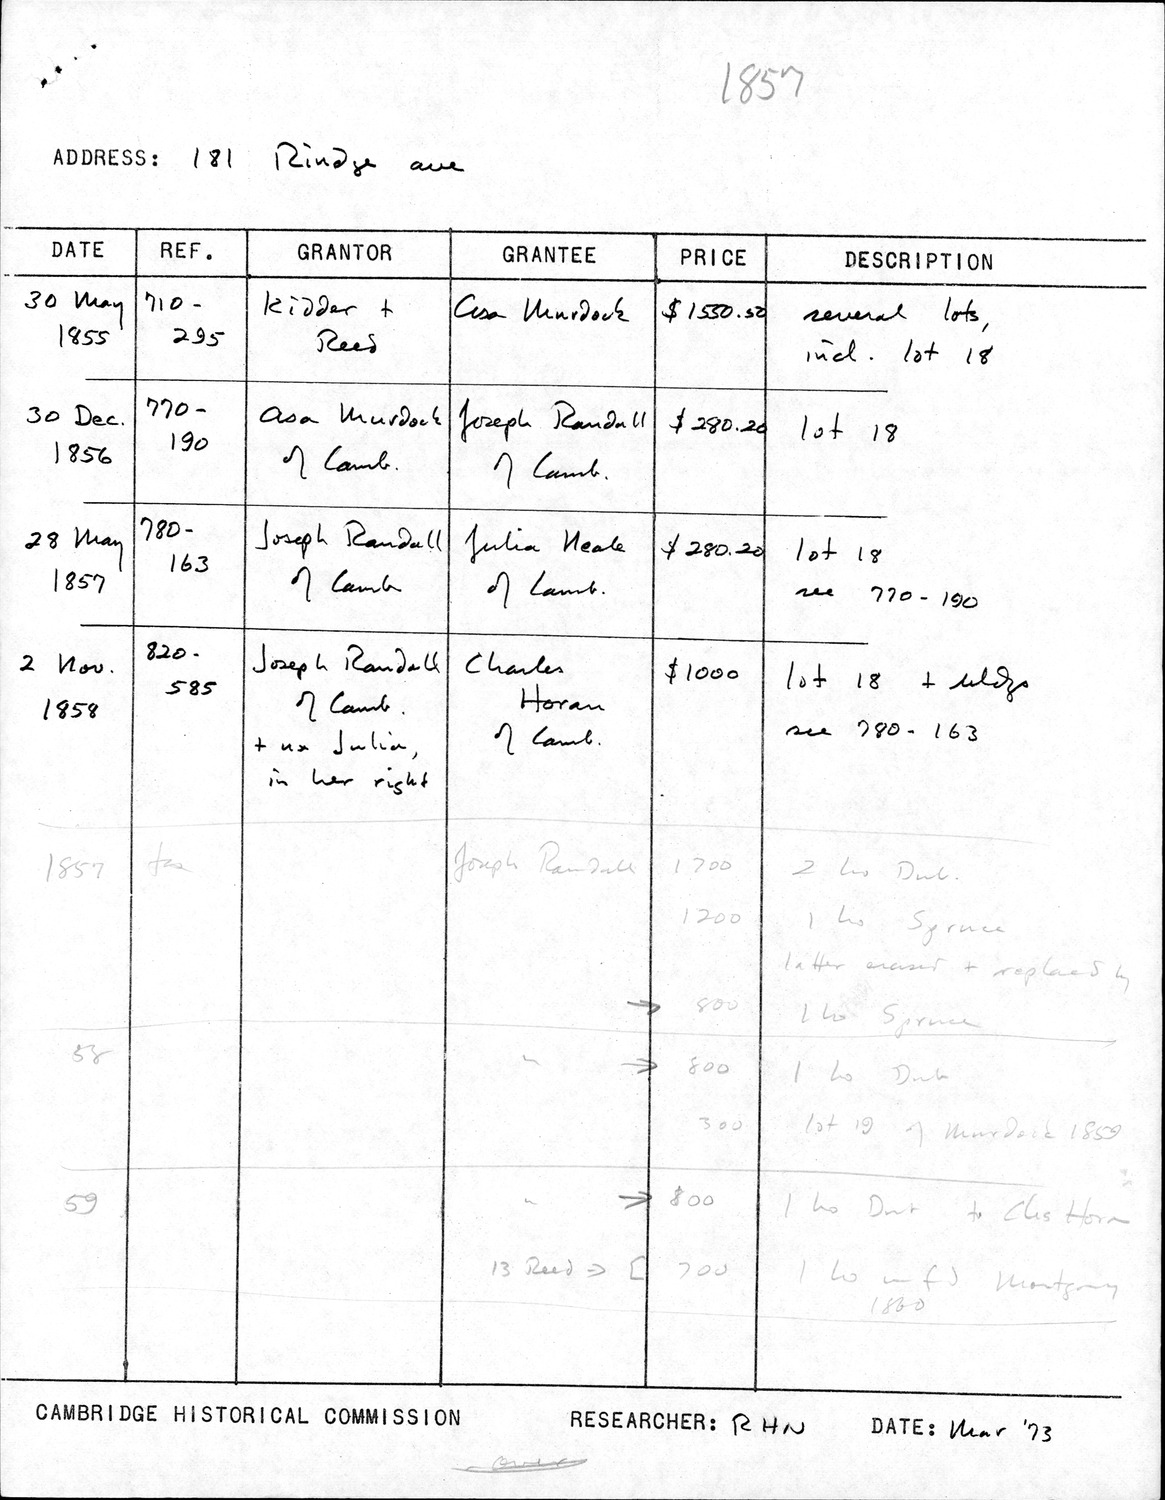 1857
ADDRESS: 181 Rindge ave
DATE REF. GRANTOR GRANTEE PRICE DESCRIPTION
30 May 710- Kidder + Asa Murdock $1550.50 several lots,
1855 295 Reed incl. lot 18
30 Dec. 770- Asa Murdock Joseph Randall $280.20 lot 18
1856 190 of Camb. of Camb.
28 May 780- Joseph Randall Julia Neale $280.20 lot 18
1857 163 of Camb of Camb. see 770-190
2 Nov. 820- Joseph Randall Charles $1000 lot 18 + bldgs
1858 585 of Camb. Horan see 780-163
+ ux Julia, of Camb.
in her right
1857 tax Joseph Randall 1700 2 ho Dub.
1200 1 ho Spruce
latter erased + replaced by
→ 800 1 ho Spruce
58 " → 800 1 ho Dub
300 lot 19 of Murdock 1859
59 " → 800 1 ho Dub to Chs Horan
13 Reed ⇒ [ 700 1 ho unf'd Montgomery
1860
CAMBRIDGE HISTORICAL COMMISSION RESEARCHER: RHN DATE: Mar '73
over